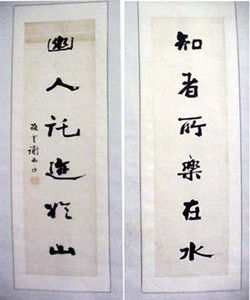 知者所樂在水
幽人託迹於山